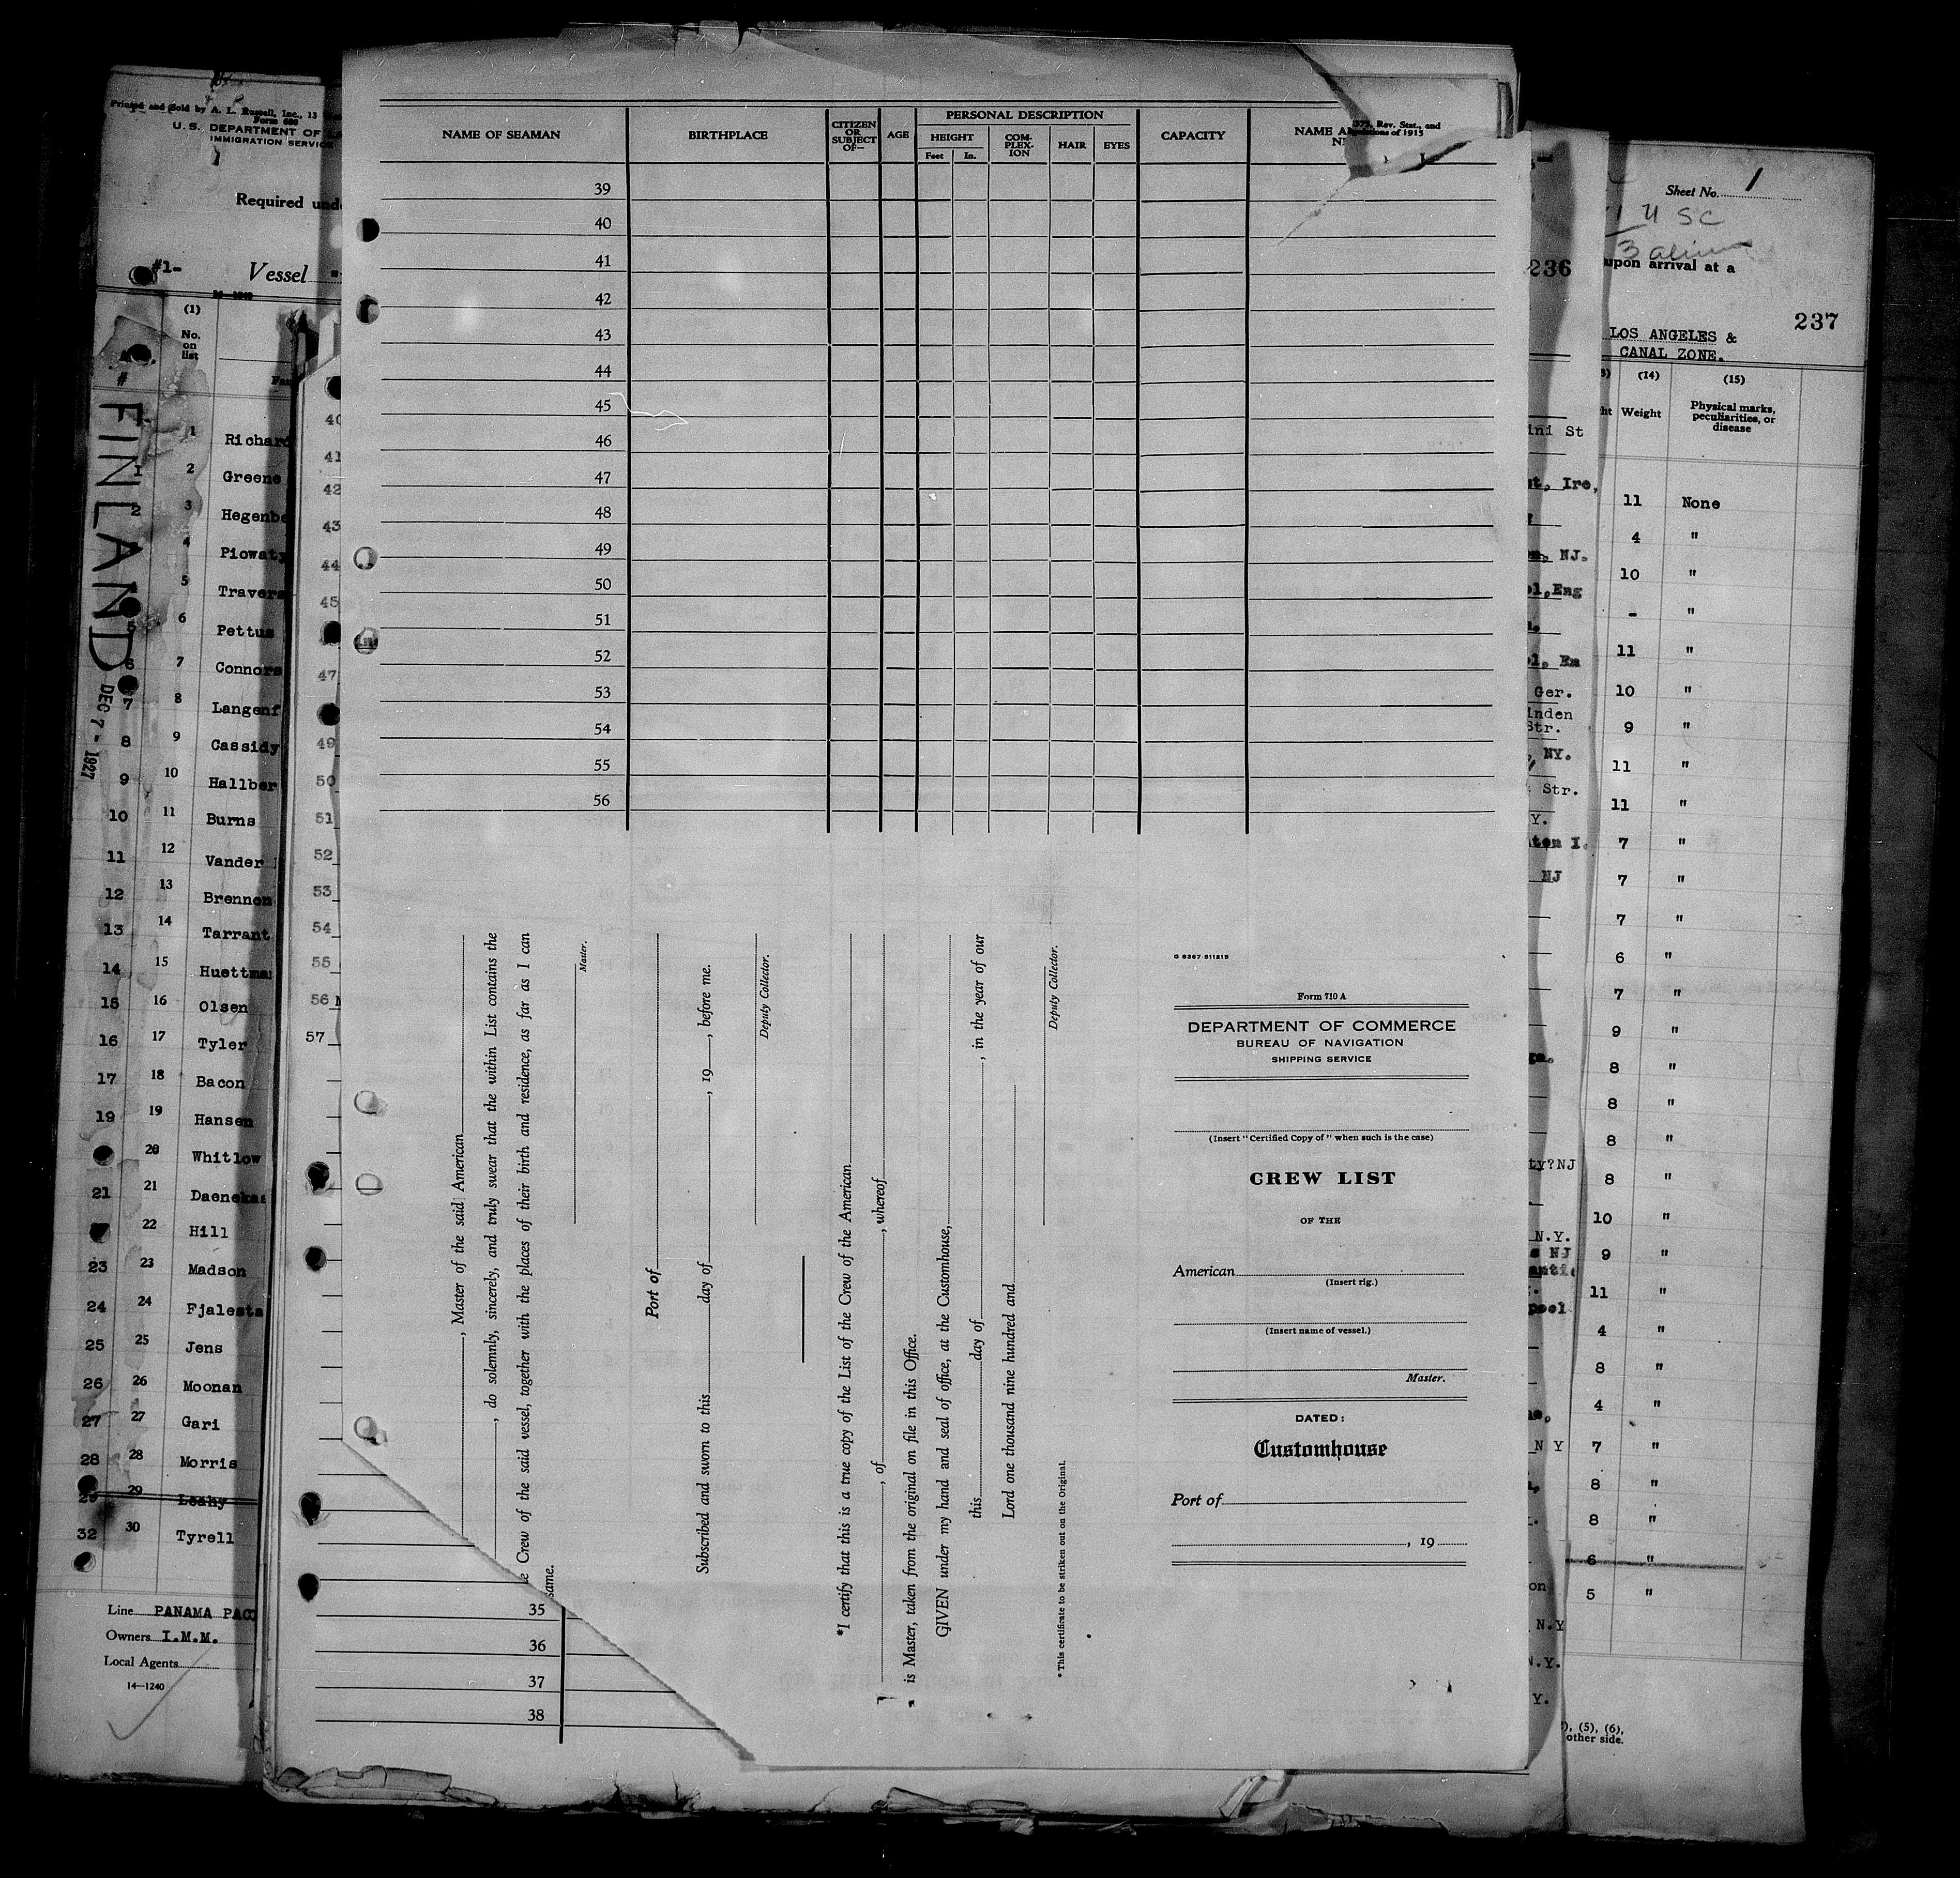 Printed and Sold by A. L. Russell, Inc., 13
Form 680
U. S. DEPARTMENT OF
IMMIGRATION SERVICE
Required
#1-
Vessel
(1)
No.
on
list
#
FINLAND
DEC 7 - 1927
1 Richard
1 2 Greene
2 3 Hegenbe
4 Piowaty
5 Travers
5 6 Pettus
6 7 Connors
7 8 Langenf
8 9 Cassidy
9 10 Hallber
10 11 Burns
11 12 Vander
12 13 Brennon
13 14 Tarrant
14 15 Huettma
15 16 Olsen
16 17 Tyler
17 18 Bacon
19 19 Hansen
20 Whitlow
21 21 Daenekas
22 Hill
23 23 Madson
24 24 Fjalesta
25 25 Jens
26 26 Moonan
27 27 Gari
28 28 Morris
29 29 Leahy
32 30 Tyrell
Line PANAMA PAC
Owners I.M.M.
Local Agents
14—1240
40
41
42
43
44
45
47
49
50
51
52
53
54
55
56
57
NAME OF SEAMAN
BIRTHPLACE
CITIZEN
OR
SUBJECT
OF—
AGE
PERSONAL DESCRIPTION
HEIGHT
Feet In.
COM-
PLEX-
ION
HAIR
EYES
CAPACITY
NAME A
Rev. Stat., and
of 1915
39
40
41
42
43
44
45
46
47
48
49
50
51
52
53
54
55
56
, Master of the said American
, do solemnly, sincerely, and truly swear that the within List contains the
Crew of the said vessel, together with the places of their birth and residence, as far as I can
same.
Master.
Port of
Subscribed and sworn to this day of , 19 , before me.
Deputy Collector.
*I certify that this is a true copy of the List of the Crew of the American
, of , whereof
is Master, taken from the original on file in this Office.
GIVEN under my hand and seal of office, at the Customhouse,
this day of , in the year of our
Lord one thousand nine hundred and
Deputy Collector.
* This certificate to be striken out on the Original.
35
36
37
38
G 8367-511215
Form 710 A
DEPARTMENT OF COMMERCE
BUREAU OF NAVIGATION
SHIPPING SERVICE
(Insert "Certified Copy of" when such is the case)
CREW LIST
OF THE
American
(Insert rig.)
(Insert name of vessel.)
Master.
DATED:
Customhouse
Port of
, 19
236
ini St
t, Ire,
NJ.
l,Eng
l, En
Ger.
inden
Str.
, NY.
Str.
Y.
ton I.
NJ
ga.
ty?NJ
N.Y.
s NJ
antic
pool
N Y
on
N.Y
N.Y.
Y.
), (5), (6),
other side.
Sheet No. 1
U SC
3 aliens
upon arrival at a
237
LOS ANGELES &
CANAL ZONE.
(14) (15)
ht Weight
Physical marks,
peculiarities, or
disease
11 None
4 "
10 "
- "
11 "
10 "
9 "
11 "
11 "
7 "
7 "
7 "
6 "
7 "
9 "
8 "
8 "
8 "
8 "
10 "
9 "
11 "
4 "
8 "
4 "
7 "
8 "
8 "
6 "
5 "